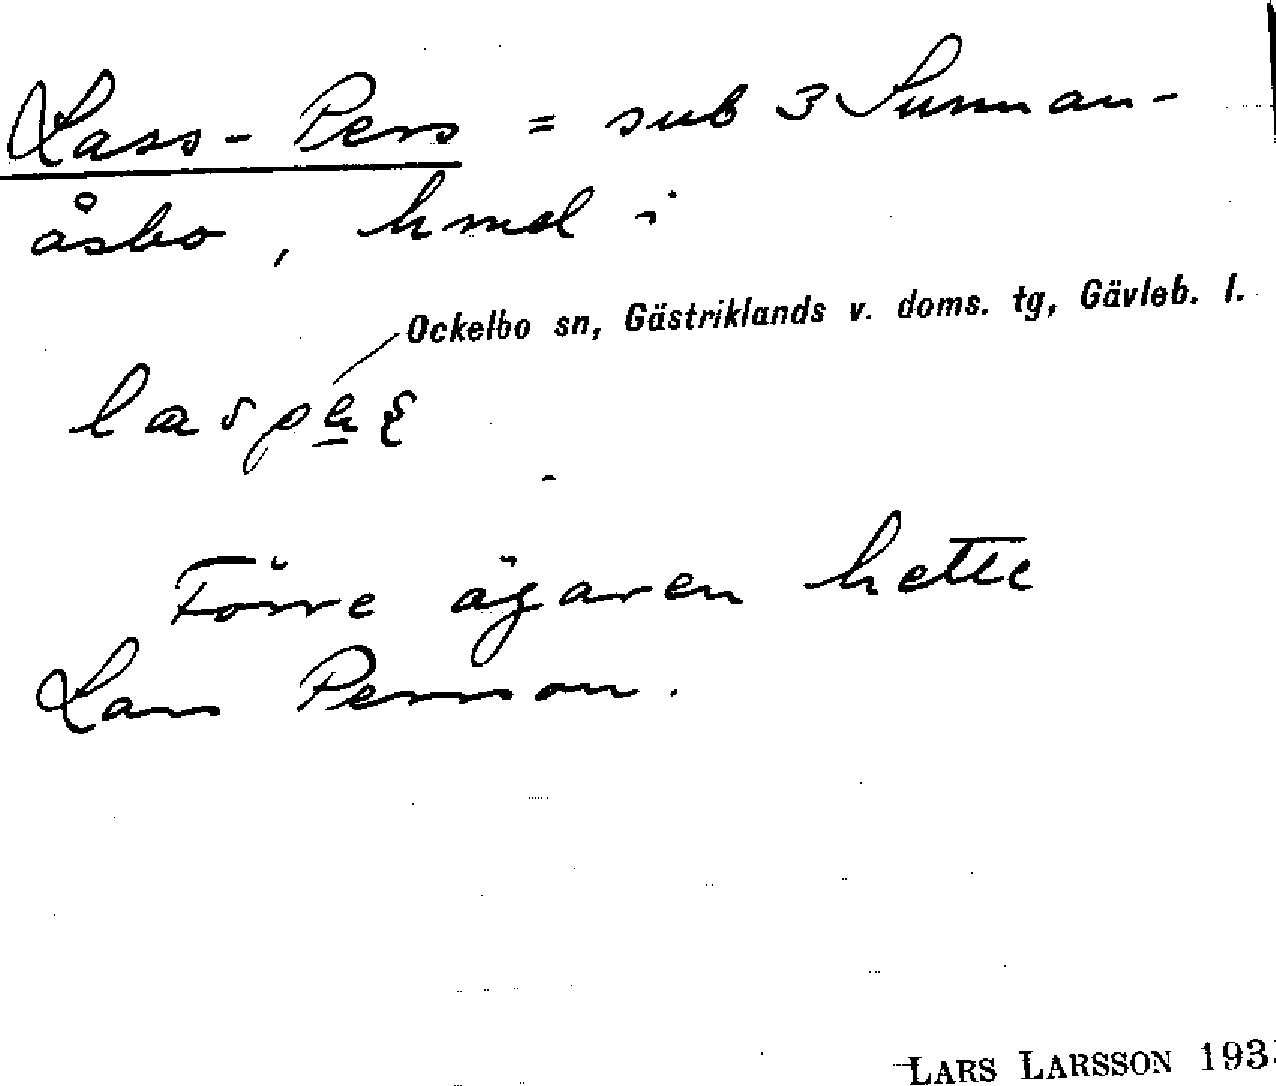 Lass-Pers = sub 3 Sunnan-
åsbo, hmd i
Ockelbo sn, Gästriklands v. doms. tg, Gävleb. l.
Förre ägaren hette
Lars Persson.
LARS LARSSON 193